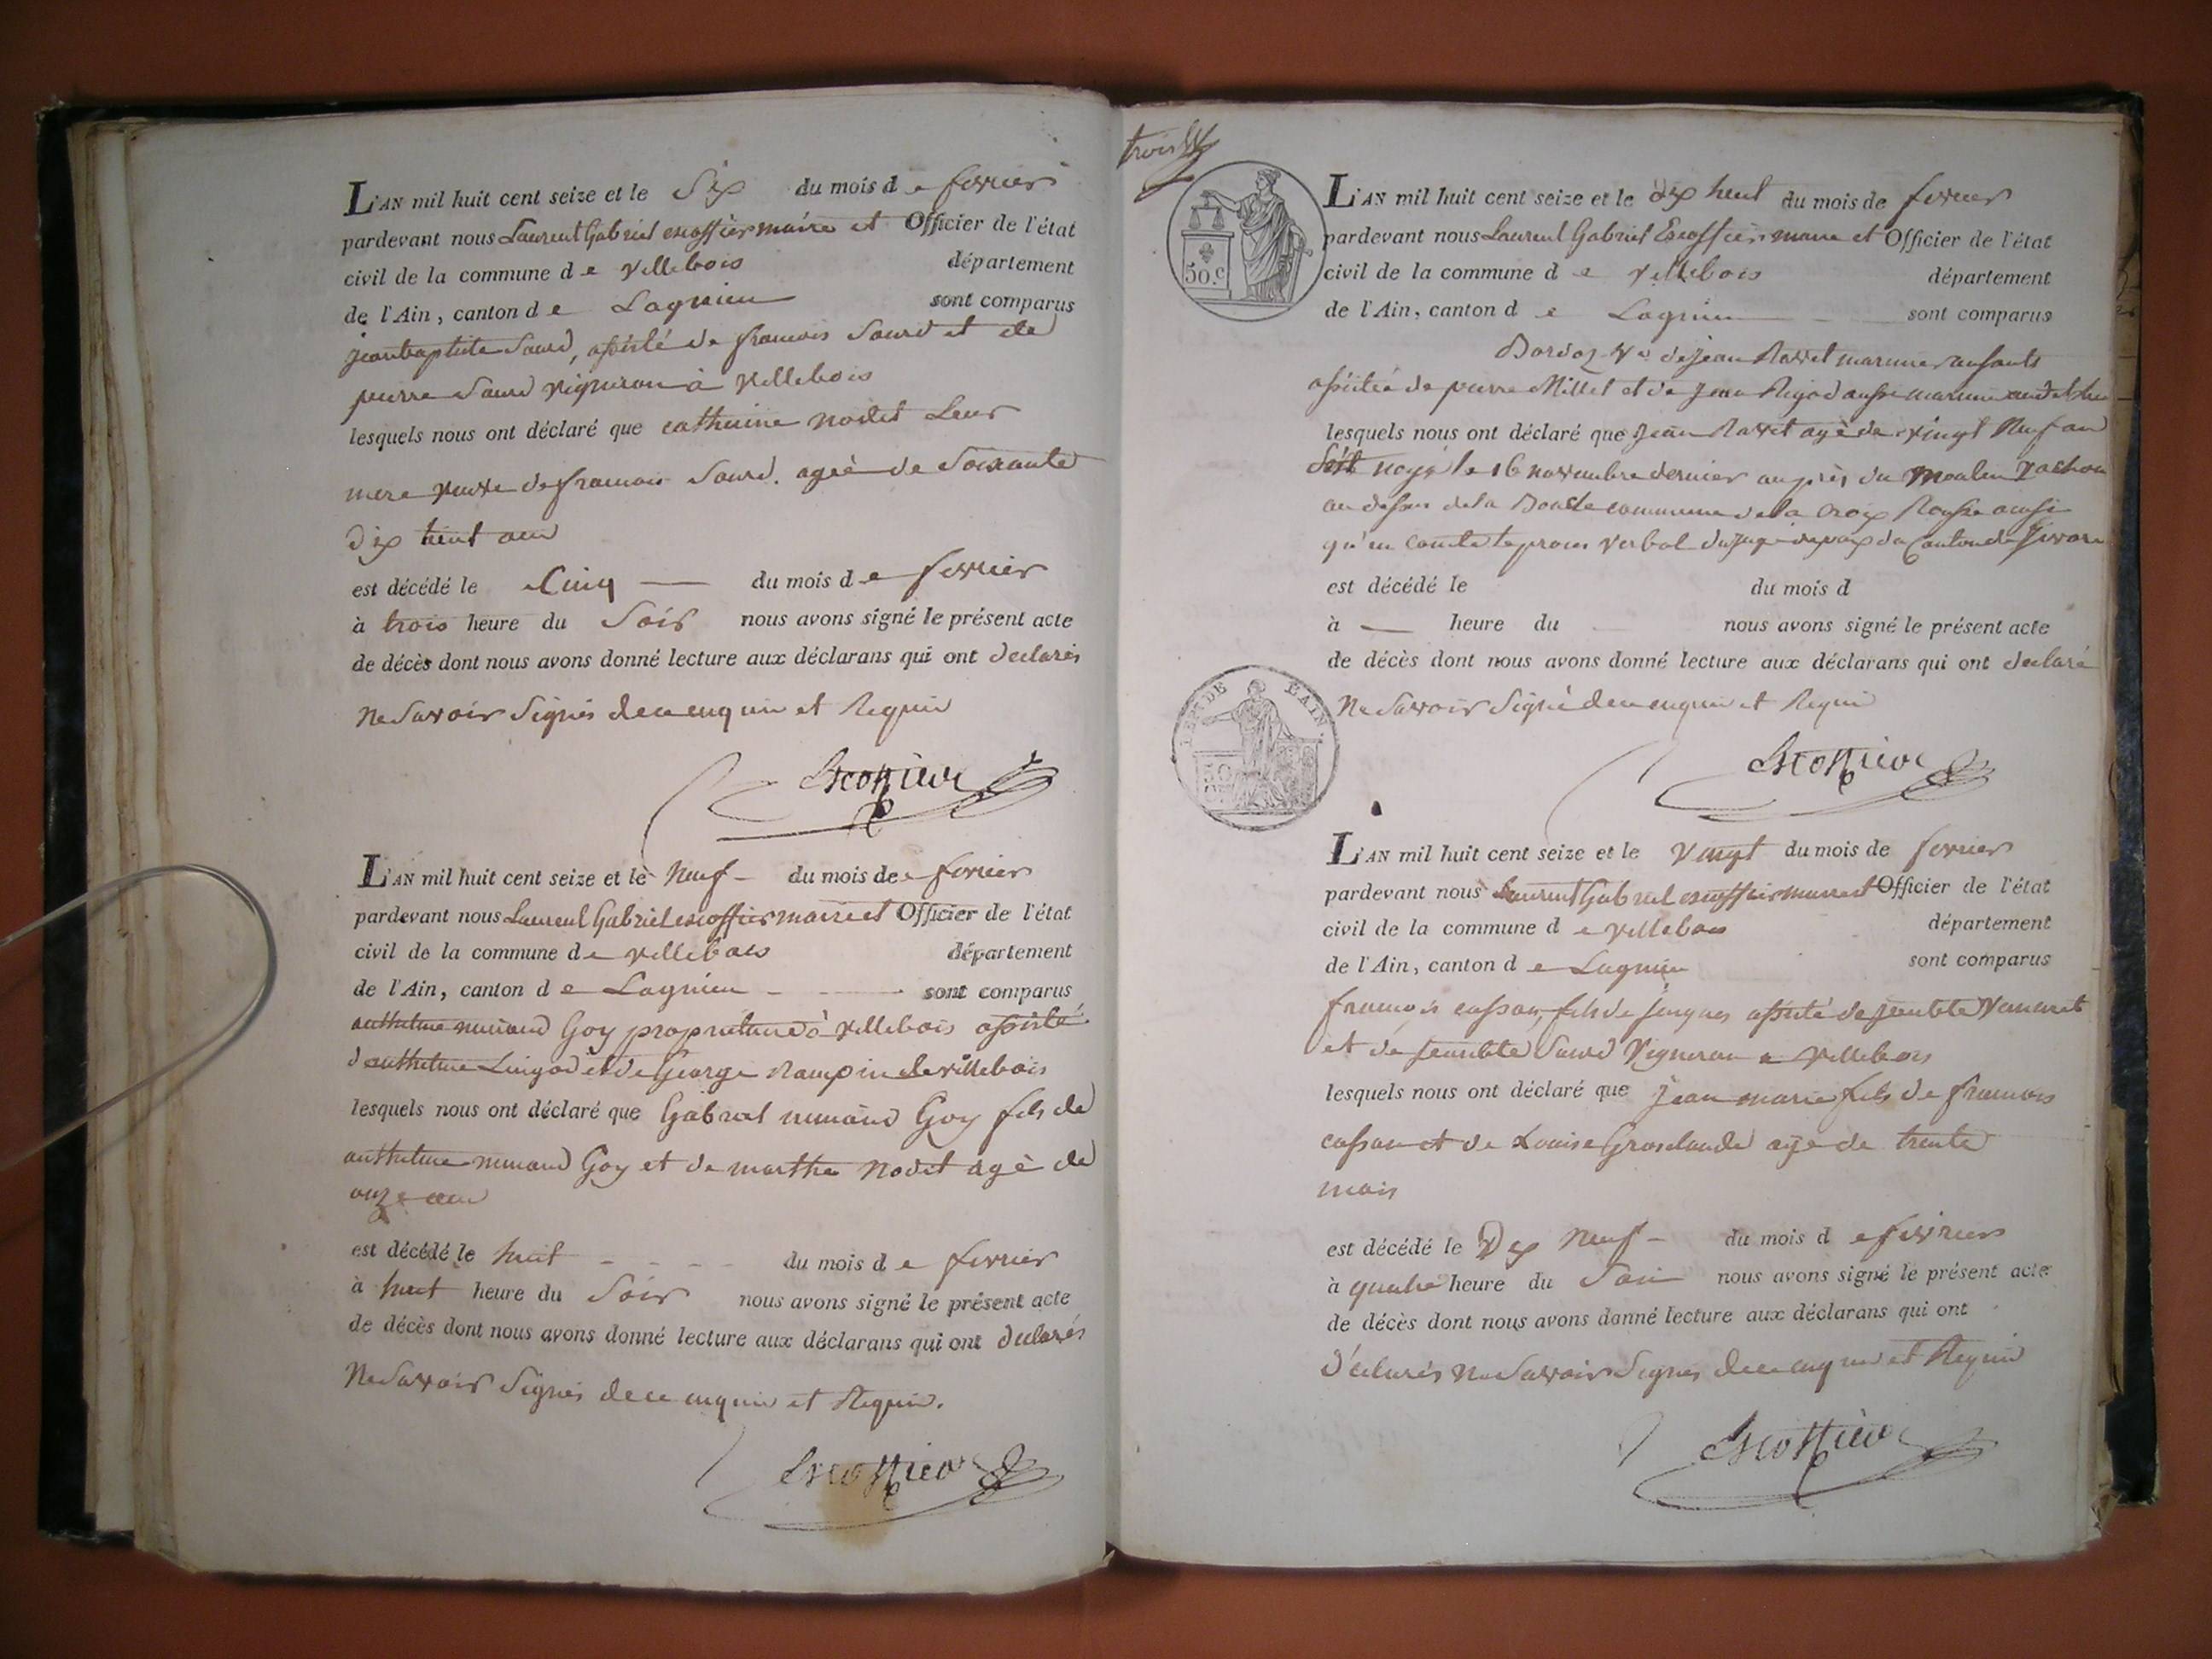 L'AN mil huit cent seize et le Six du mois d e fevrier
pardevant nous Laurent Gabriel escoffier maire et Officier de l'état
civil de la commune d e villebois département
de l'Ain, canton d e Lagnieu sont comparus
jeanbaptiste Sourd, assisté de francois Sourd et de
pierre Sourd vigneron à villebois
lesquels nous ont déclaré que catherine nodet Leur
mere veuve de francois Sourd. ageé de Soixante
dix huit ans
est décédé le Cinq du mois d e fevrier
à trois heure du Soir nous avons signé le présent acte
de décès dont nous avons donné lecture aux déclarans qui ont declarés
Ne Savoir Signés de ce enquis et Requis
Escoffier
L'AN mil huit cent seize et le Neuf du mois de e fevrier
pardevant nous Laurent Gabriel escoffier maire et Officier de l'état
civil de la commune d e villebois département
de l'Ain, canton d e Lagnieu sont comparus
Goy proprietaire à villebois assisté
et de George Rampin de villebois
lesquels nous ont déclaré que Gabriel Goy fils de
Goy et de marthe Nodet agé de
onze ans
est décédé le huit du mois d e fevrier
à huit heure du Soir nous avons signé le présent acte
de décès dont nous avons donné lecture aux déclarans qui ont declarés
Ne Savoir Signés de ce enquis et Requis.
Escoffier
trois
50.c
L'AN mil huit cent seize et le dix huit du mois de fevrier
pardevant nous Laurent Gabriel Escoffier maire et Officier de l'état
civil de la commune d e villebois département
de l'Ain, canton d e Lagnieu sont comparus
Bordoz Ve de jean Ravet marinier
assistée de pierre Millet et de jean Rigod aussi marinier
lesquels nous ont déclaré que jean Ravet agé de vingt Neuf an
noyé le 16 novembre dernier auprès du Moulin
au dessus de la commune de la Croix Rousse ainsi
qu'en Conste le proces verbal du juge de paix du Canton de
est décédé le du mois d
à heure du nous avons signé le présent acte
de décès dont nous avons donné lecture aux déclarans qui ont declaré
Ne Savoir Signé de ce enquis et Requis
Escoffier
L'AN mil huit cent seize et le vingt du mois de fevrier
pardevant nous Laurent Gabriel escoffier maire et Officier de l'état
civil de la commune d e villebois département
de l'Ain, canton d e Lagnieu sont comparus
francois cassan, fils de jacques assisté de jeanbte
et de jeanbte Sourd Vigneron a villebois
lesquels nous ont déclaré que jean marie fils de francois
cassan et de Louise Groslande agé de trente
mois
est décédé le Dix neuf du mois d e fevrier
à quatre heure du Soir nous avons signé le présent acte
de décès dont nous avons donné lecture aux déclarans qui ont
declarés Ne Savoir Signés de ce enquis et Requis
Escoffier